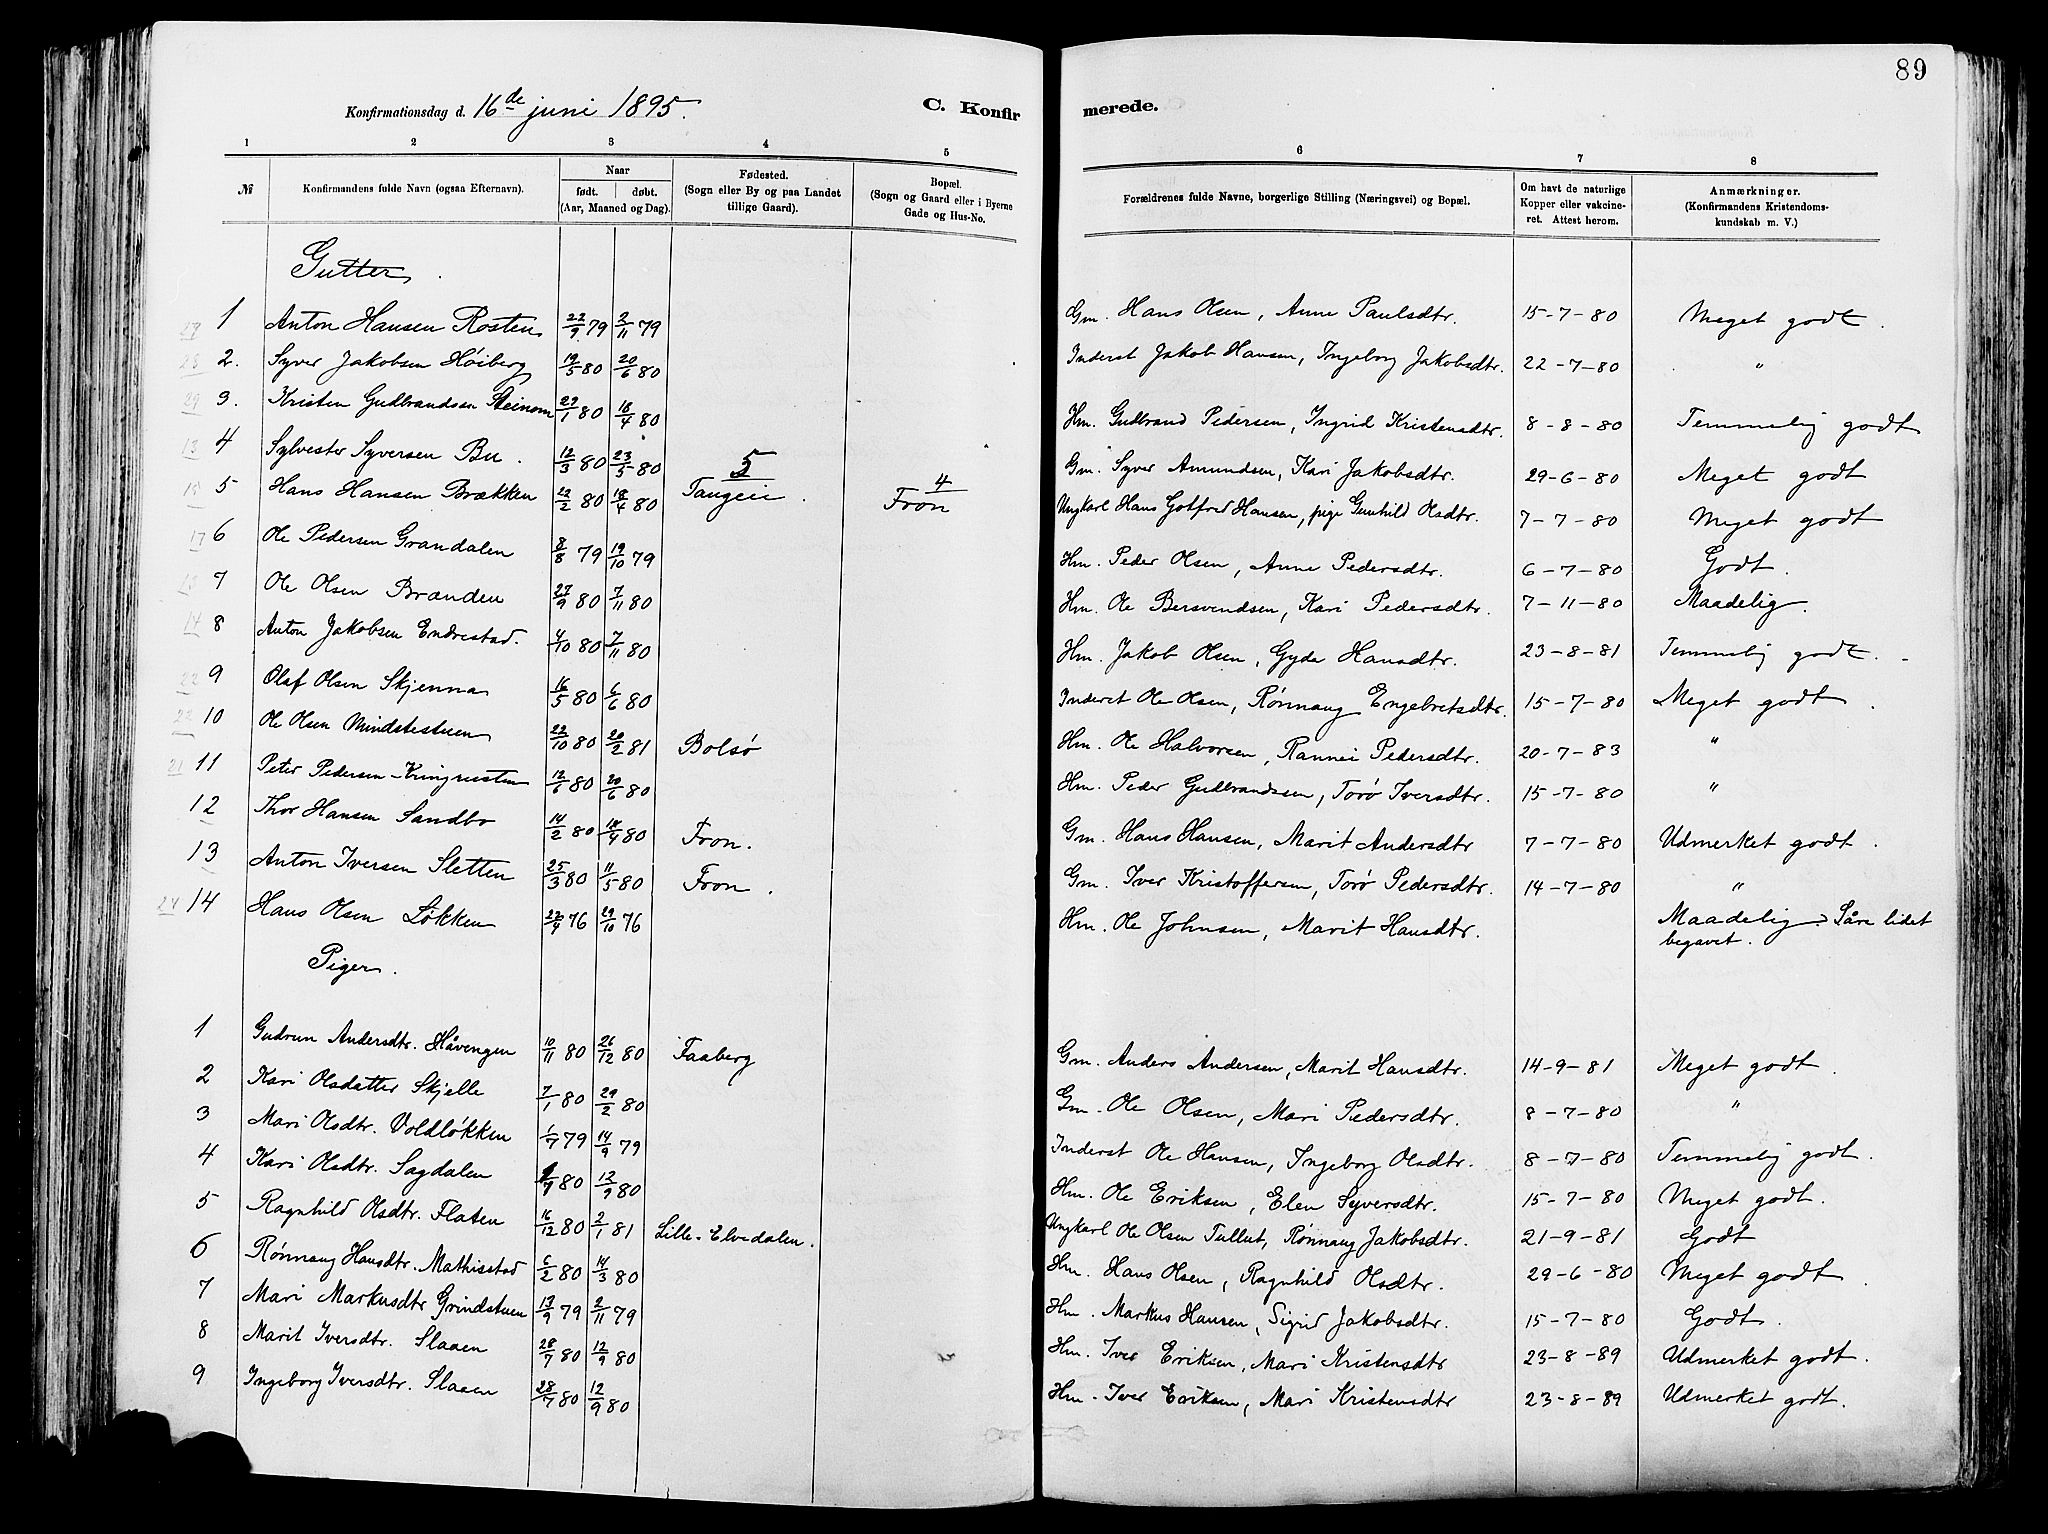 89
Konfirmationsdag d. 16de juni 1895.
C. Konfirmerede.
1 2 3 4 5 6 7 8
№ Konfirmandens fulde Navn (ogsaa Efternavn). Naar født. døbt. (Aar, Maaned og Dag). Fødested. (Sogn eller By og paa Landet tillige Gaard). Bopæl. (Sogn og Gaard eller i Byerne Gade og Hus-No. Forældrenes fulde Navne, borgerlige Stilling (Næringsvei) og Bopæl. Om havt de naturlige Kopper eller vakcineret. Attest herom. Anmærkninger. (Konfirmandens Kristendomskundskab m. V.)
Gutter.
1 Anton Hansen Rosten 22/9 79 2/11 79 Gm. Hans Olsen, Anne Paulsdtr. 15-7-80 Meget godt.
2. Syver Jakobsen Høiberg 19/5 80 20/6 80 Inderst Jakob Hansen, Ingeborg Jakobsdtr. 22-7-80 "
3. Kristen Gudbrandsen Steinom 29/1 80 18/4 80 Hm. Gudbrand Pedersen, Ingrid Kristensdtr. 8-8-80 Temmelig godt
4 Sylvester Syversen Bu. 12/3 80 23/5 80 Gm. Syver Amundsen, Kari Jakobsdtr. 29-6-80 Meget godt
5 Hans Hansen Brækken 22/2 80 18/4 80 5 Tangeii. 4 Fron Ungkarl Hans Gotfred Hansen, pige Gunhild Olsdtr. 7-7-80 Meget godt
6 Ole Pedersen Grandalen 8/8 79 19/10 79 Hm. Peder Olsen, Anne Pedersdtr. 6-7-80 Godt.
7 Ole Olsen Brænden 27/9 80 7/11 80 Hm. Ole Bersvendsen, Kari Pedersdtr. 7-11-80 Maadelig.
8 Anton Jakobsen Endrestad. 4/10 80 7/11 80 Hm. Jakob Olsen, Gyda Hansdtr. 23-8-81 Temmelig godt.
9 Olaf Olsen Skjenna 16/5 80 6/6 80 Inderst Ole Olsen, Rønnaug Engebretsdtr. 15-7-80 Meget godt.
10 Ole Olsen Mindstestuen 22/10 80 20/2 81 Bolsø Hm. Ole Halvorsen, Rannei Pedersdtr. 20-7-83 "
11 Peter Pedersen 12/6 80 20/6 80 Hm. Peder Gudbrandsen, Torø Iversdtr. 15-7-80 "
12 Thor Hansen Sandbo 14/2 80 18/4 80 Fron. Gm. Hans Hansen, Marit Andersdtr 7-7-80 Udmerket godt.
13 Anton Iversen Sletten 25/3 80 11/5 80 Fron. Gm. Iver Kristoffersen, Torø Pedersdtr. 14-7-80 "
14 Hans Olsen Løkken 22/9 76 29/10 76 Hm. Ole Johnsen, Marit Hansdtr. Maadelig. Såre lidet
begavet.
Piger.
1 Gudrun Andersdtr. Håvengen 10/11 80 26/12 80 Faaberg Gm. Anders Andersen, Marit Hansdtr. 14-9-81 Meget godt.
2 Kari Olsdatter Skjelle 7/1 80 29/2 80 Gm. Ole Olsen, Mari Pedersdtr. 8-7-80 "
3 Mari Olsdtr. Voldløkken 1/7 79 14/9 79 Inderst Ole Hansen, Ingeborg Olsdtr. 8-7-80 Temmelig godt.
4 Kari Olsdtr. Sagdalen 80 12/9 80 Hm. Ole Eriksen, Elen Syversdtr. 15-7-80 Meget godt.
5 Ragnhild Olsdtr. Flaten 16/12 80 2/1 81 Lille-Elvedalen. Ungkarl Ole Olsen Tullut, Rønnaug Jakobsdtr. 21-9-81 Godt
6 Rønnaug Hansdtr. Mathisstad 6/2 80 14/3 80 Hm. Hans Olsen, Ragnhild Olsdtr. 29-6-80 Meget godt.
7 Mari Markusdtr Grindstuen 13/9 79 2/11 79 Hm. Markus Hansen, Sigrid Jakobsdtr. 15-7-80 Godt.
8 Marit Iversdtr. Slaaen 28/7 80 12/9 80 Hm. Iver Eriksen, Mari Kristensdtr 23-8-89 Udmerket godt.
9 Ingeborg Iversdtr. Slaaen 28/7 80 12/9 80 Hm. Iver Eriksen, Mari Kristensdtr 23-8-89 Udmerket godt.